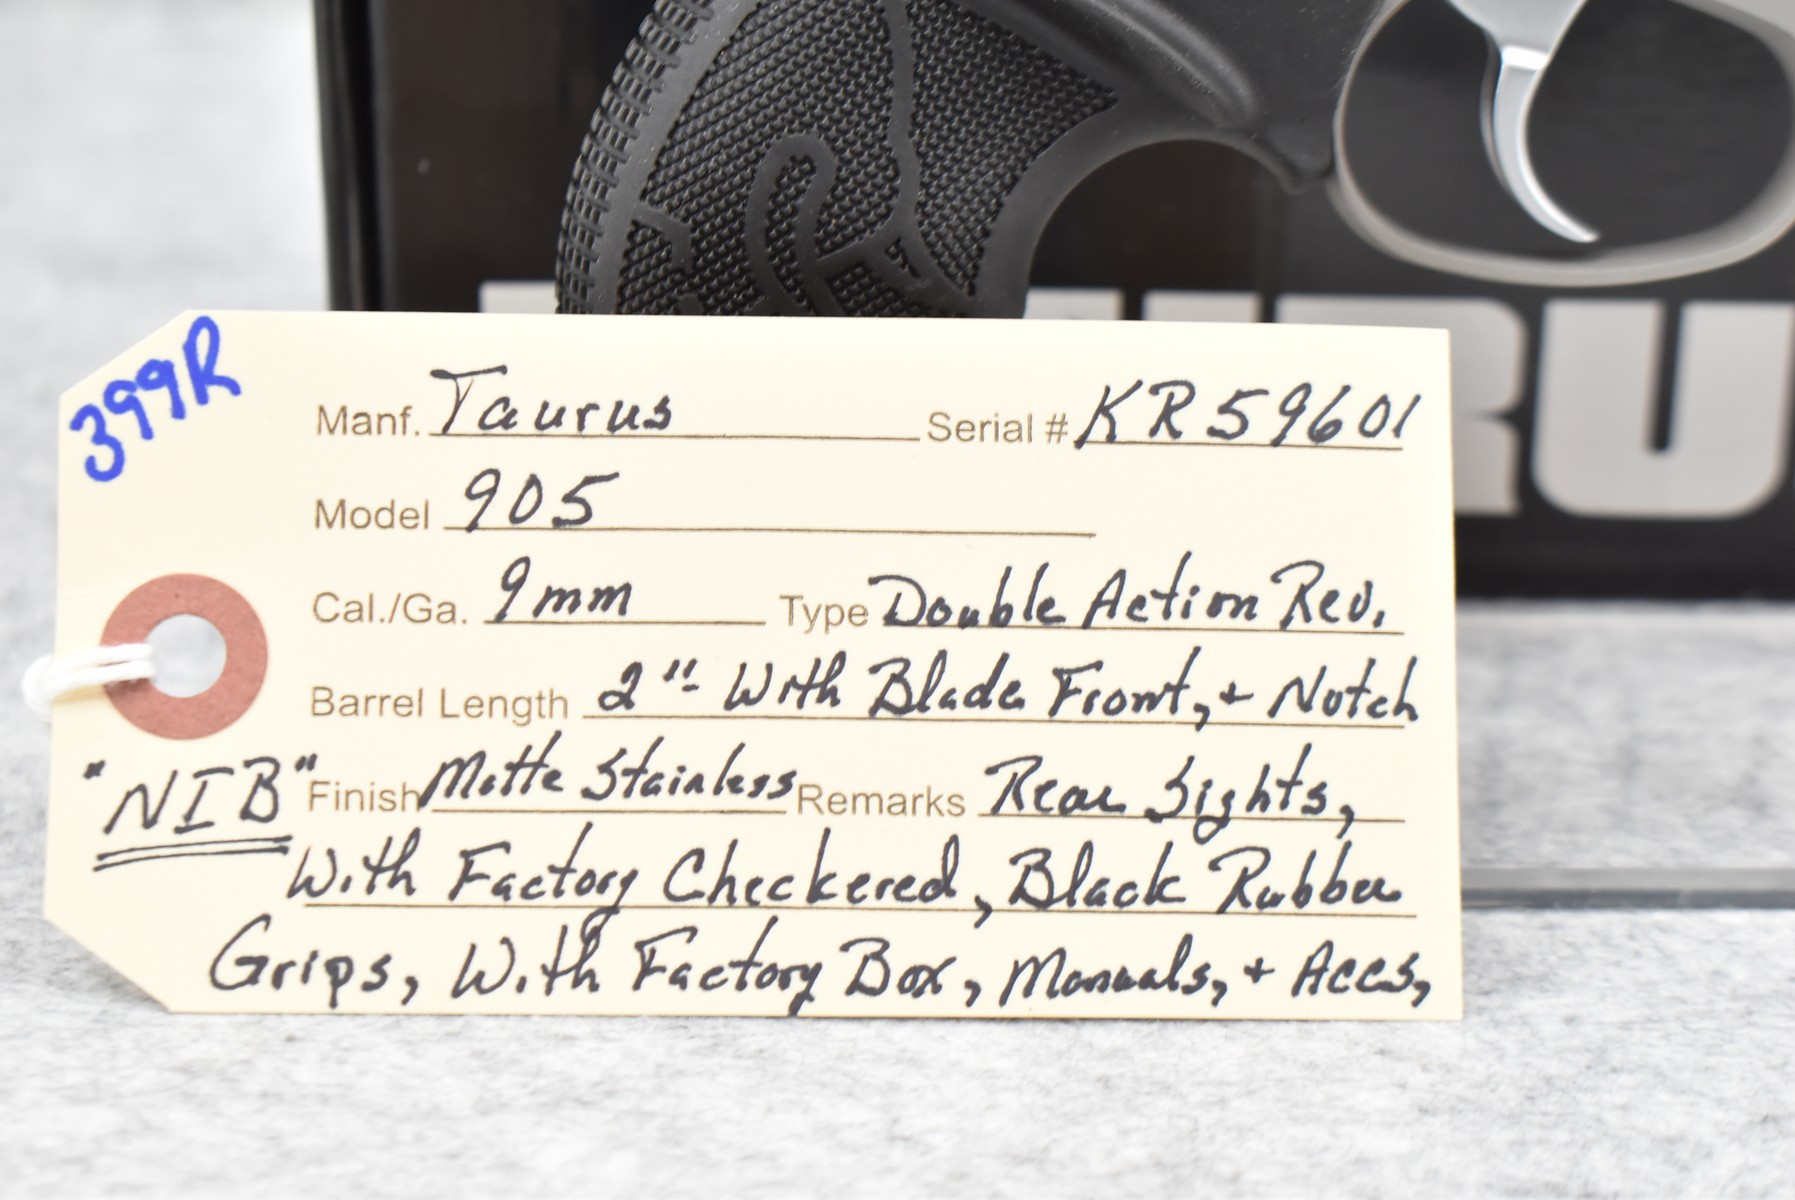 399R
Manf. Taurus Serial # KR59601
Model 905
Cal./Ga. 9mm Type Double Action Rev.
Barrel Length 2"- With Blade Front, + Notch
"NIB" Finish Matte Stainless Remarks Rear Sights,
With Factory Checkered, Black Rubber
Grips, With Factory Box, Manuals, + Accs,